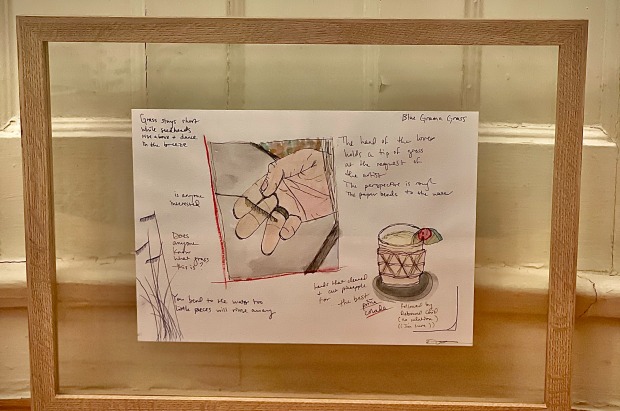 Grass stays short
while seedheads
rise above + dance
in the breeze
Blue Grama Grass
The hand of the lover
holds a tip of grass
at the request of
the artist
The perspective is rough
The paper bends to the water
is anyone
interested
Does
anyone
know
what grass
this is?
You bend to the water too
little pieces will move away
hands that cleaned
+ cut pineapple
for the best
piña
colada
followed by
(no relation)